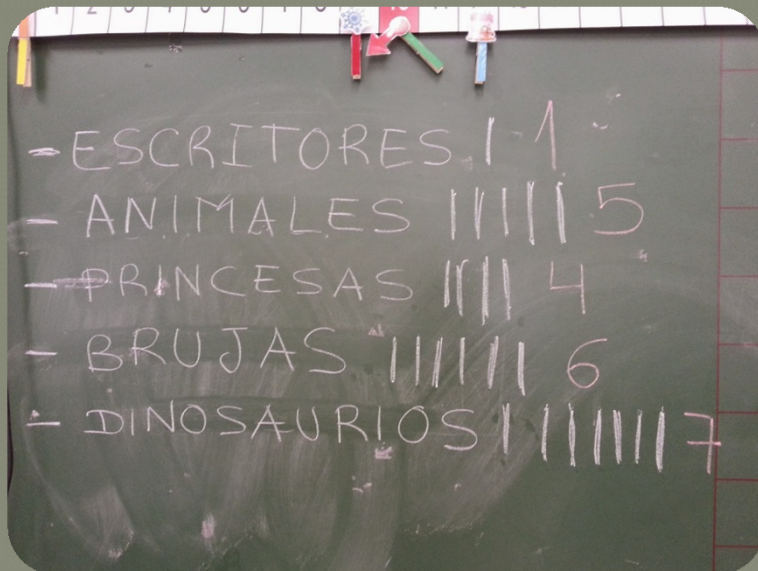 - ESCRITORES | 1
- ANIMALES ||||| 5
- PRINCESAS |||| 4
- BRUJAS |||||| 6
- DINOSAURIOS ||||||| 7